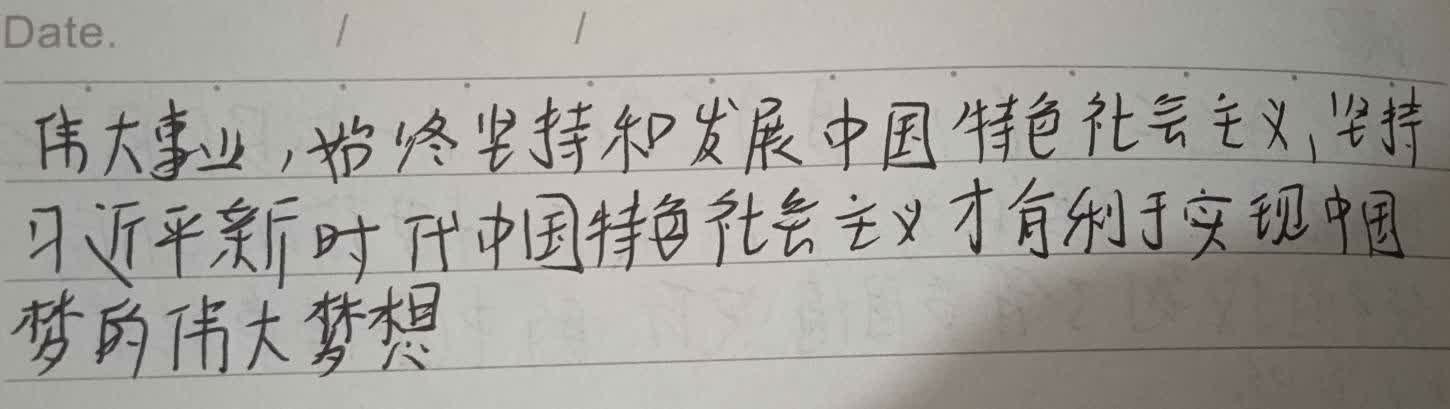 Date. / /
伟大事业，始终坚持和发展中国特色社会主义，坚持
习近平新时代中国特色社会主义才有利于实现中国
梦的伟大梦想